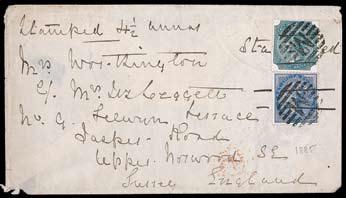 Stamped 4½ annas
Stamped
Mrs Worthington
C/o Mrs
No 9 Selwyn Terrace
Jasper Road
Upper Norwood SE
Surrey England
1885